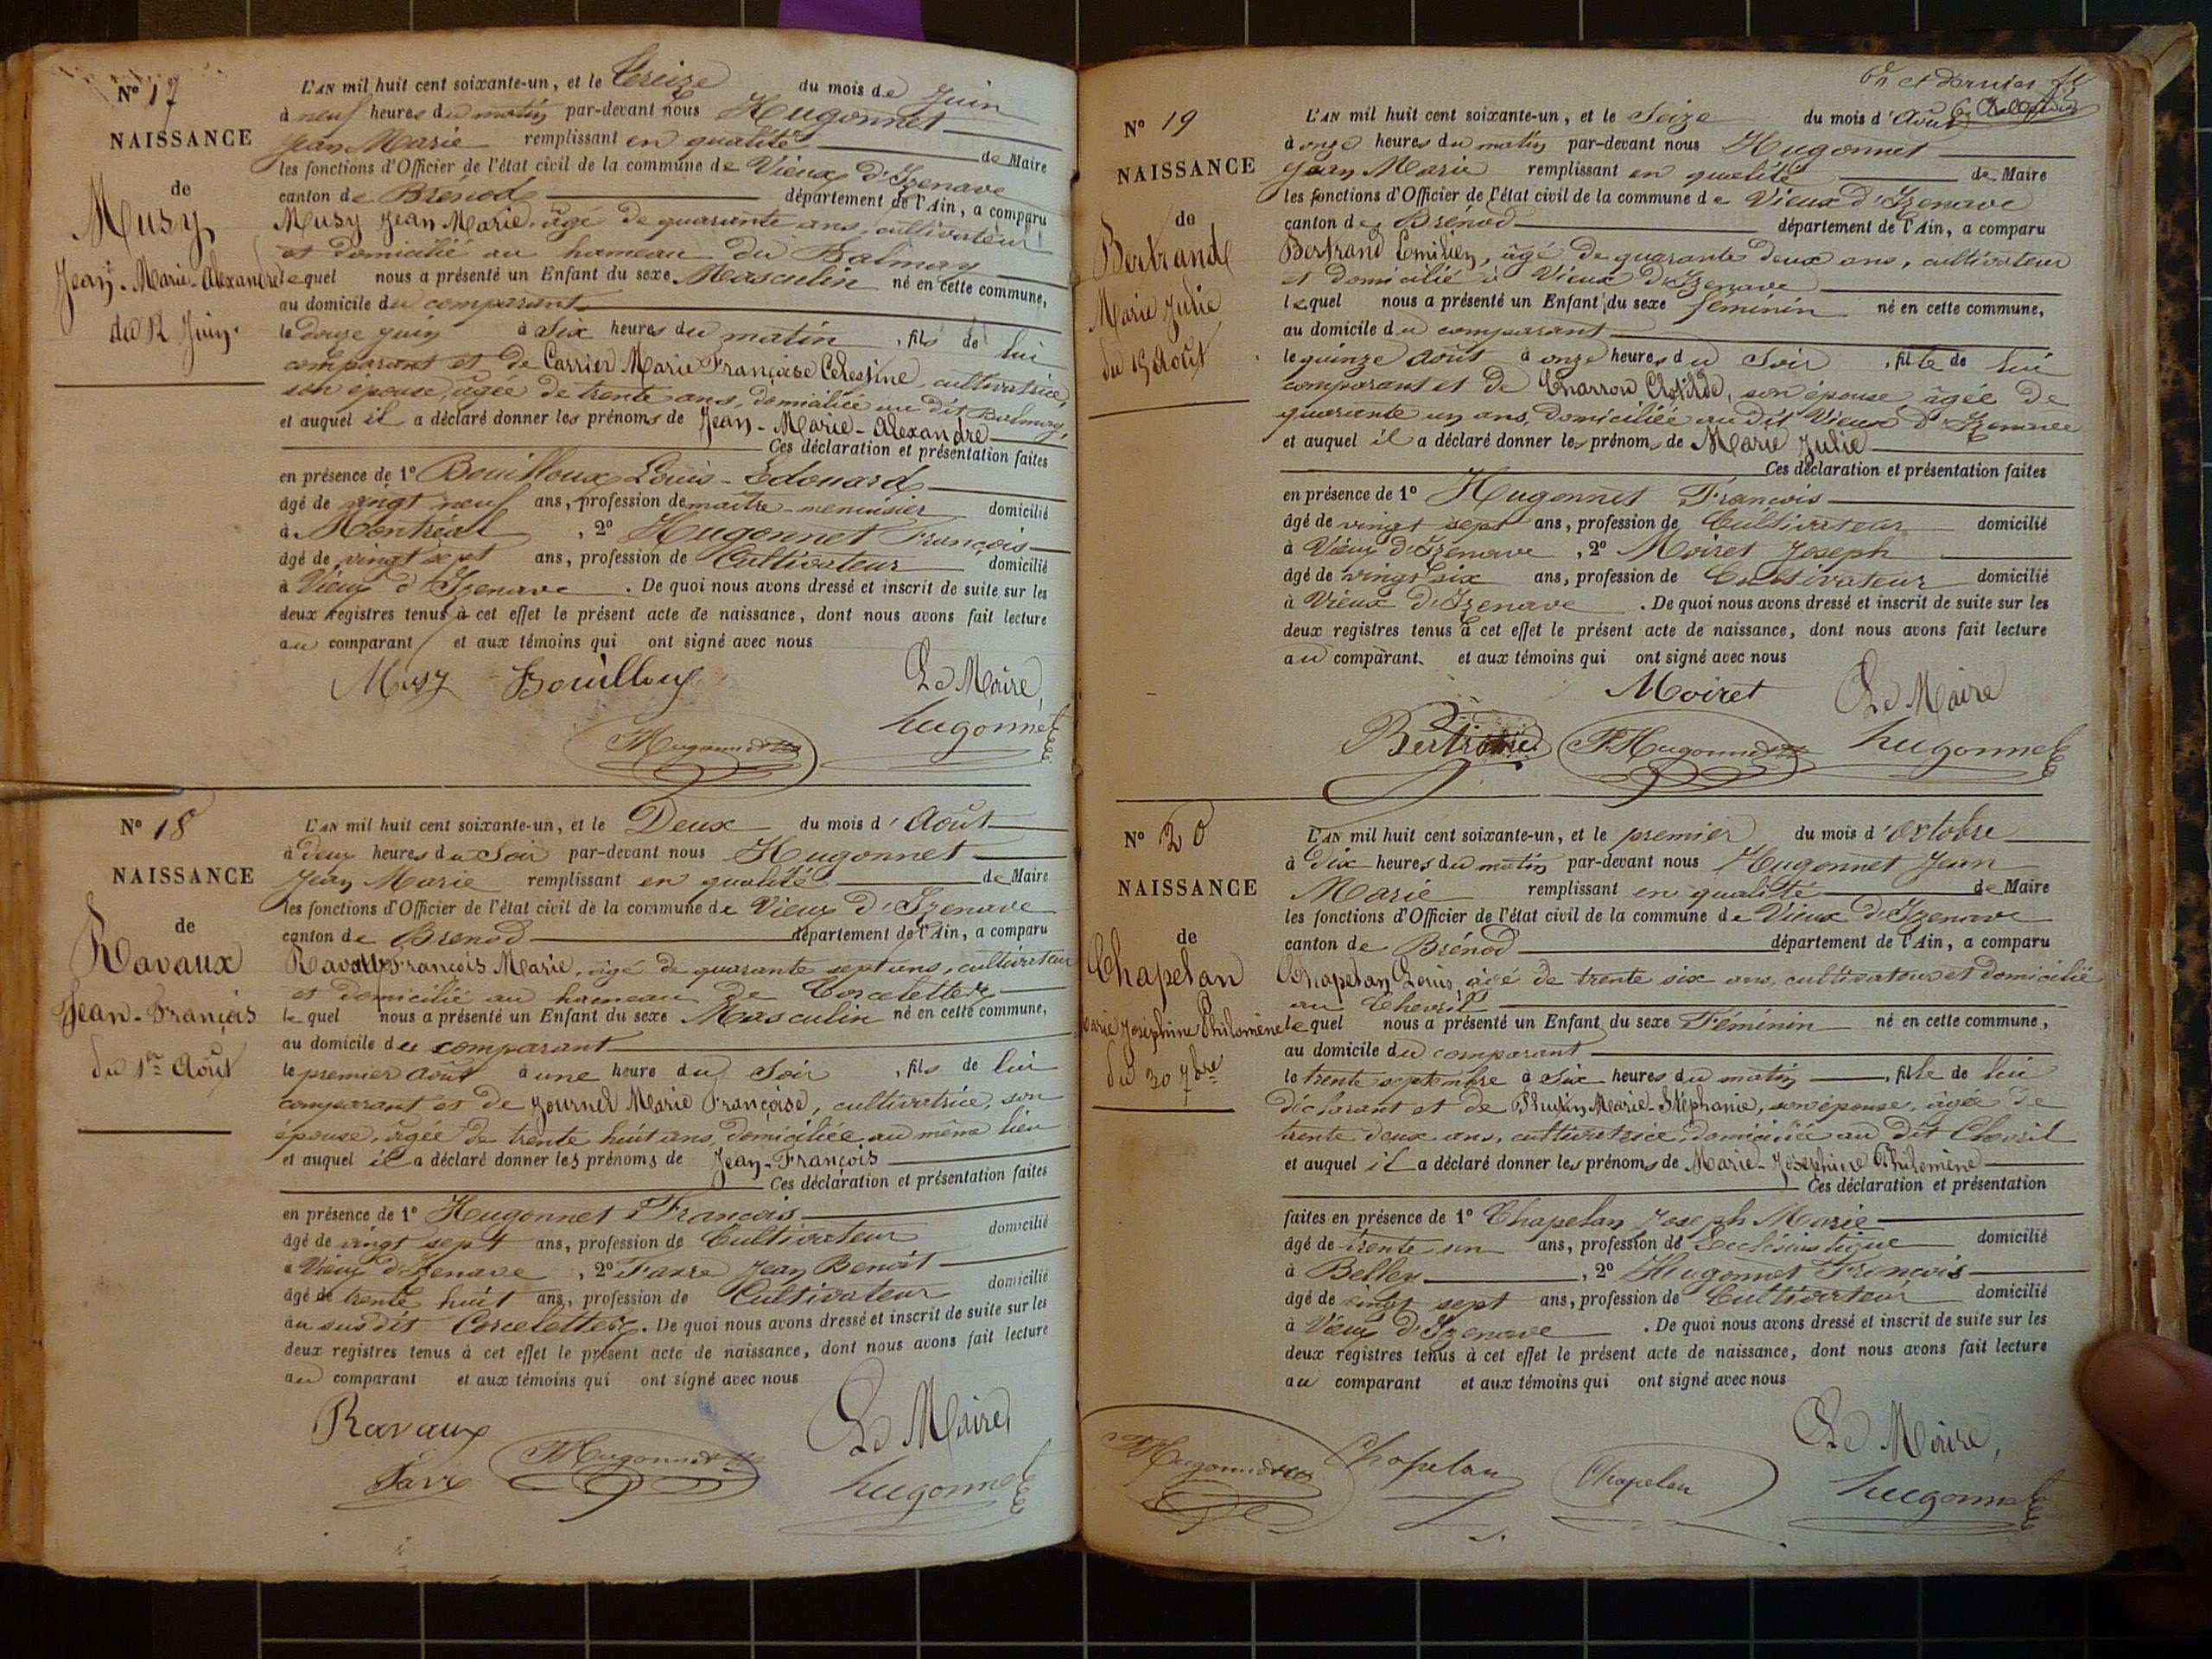 N° 17
NAISSANCE
de
Musy
Jean-Marie-Alexandre
du 12 Juin.
L'AN mil huit cent soixante-un, et le treize du mois de Juin
à neuf heures du matin par-devant nous Hugonnet
Jean Marie remplissant en qualité de Maire
les fonctions d'Officier de l'état civil de la commune de Vieux d'Izenave
canton de Brenod département de l'Ain, a comparu
Musy Jean Marie, âgé de quarante ans, cultivateur
et domicilié au hameau du Balmay
lequel nous a présenté un Enfant du sexe Masculin né en cette commune,
au domicile du comparant
le douze juin à six heures du matin, fils de lui
comparant et de Carrier Marie Françoise Célestine, cultivatrice,
son épouse, âgée de trente ans, domiciliée au dit Balmay,
et auquel il a déclaré donner les prénoms de Jean-Marie-Alexandre
Ces déclaration et présentation faites
en présence de 1° Bouilloux Louis-Edouard
âgé de vingt neuf ans, profession de maître-menuisier domicilié
à Montréal, 2° Hugonnet François
âgé de vingt sept ans, profession de Cultivateur domicilié
à Vieux d'Izenave. De quoi nous avons dressé et inscrit de suite sur les
deux registres tenus à cet effet le présent acte de naissance, dont nous avons fait lecture
au comparant et aux témoins qui ont signé avec nous
Musy Bouilloux Le Maire,
Hugonnet hugonnet
N° 18
NAISSANCE
de
Ravaux
Jean-François
du 1er Août
L'AN mil huit cent soixante-un, et le Deux du mois d'Août
à deux heures du Soir par-devant nous Hugonnet
Jean Marie remplissant en qualité de Maire
les fonctions d'Officier de l'état civil de la commune de Vieux d'Izenave
canton de Brenod département de l'Ain, a comparu
Ravaux François Marie, âgé de quarante sept ans, cultivateur
et domicilié au hameau de Corcelette
lequel nous a présenté un Enfant du sexe Masculin né en cette commune,
au domicile du comparant
le premier Août à une heure du Soir, fils de lui
comparant et de Journel Marie Françoise, cultivatrice, son
épouse, âgée de trente huit ans, domiciliée au même lieu
et auquel il a déclaré donner les prénoms de Jean-François
Ces déclaration et présentation faites
en présence de 1° Hugonnet François
âgé de vingt sept ans, profession de Cultivateur domicilié
à Vieux d'Izenave, 2° Favre Jean Benoît
âgé de trente huit ans, profession de Cultivateur domicilié
au susdit Corcelette. De quoi nous avons dressé et inscrit de suite sur les
deux registres tenus à cet effet le présent acte de naissance, dont nous avons fait lecture
au comparant et aux témoins qui ont signé avec nous
Ravaux Le Maire,
Favre Hugonnet hugonnet
6e et dernier
N° 19
NAISSANCE
de
Bertrand
Marie Julie
du 15 Août
L'AN mil huit cent soixante-un, et le Seize du mois d'Août
à onze heures du matin par-devant nous Hugonnet
Jean Marie remplissant en qualité de Maire
les fonctions d'Officier de l'état civil de la commune de Vieux d'Izenave
canton de Brenod département de l'Ain, a comparu
Bertrand Emilien, âgé de quarante deux ans, cultivateur
et domicilié à Vieux d'Izenave
lequel nous a présenté un Enfant du sexe féminin né en cette commune,
au domicile du comparant
le quinze Août à onze heures du Soir, fille de lui
comparant et de Charron Clotilde, son épouse, âgée de
quarante un ans, domiciliée au dit Vieux d'Izenave
et auquel il a déclaré donner les prénoms de Marie Julie
Ces déclaration et présentation faites
en présence de 1° Hugonnet François
âgé de vingt sept ans, profession de Cultivateur domicilié
à Vieux d'Izenave, 2° Moiret Joseph
âgé de vingt six ans, profession de Cultivateur domicilié
à Vieux d'Izenave. De quoi nous avons dressé et inscrit de suite sur les
deux registres tenus à cet effet le présent acte de naissance, dont nous avons fait lecture
au comparant et aux témoins qui ont signé avec nous
Moiret Le Maire
Bertrand F Hugonnet hugonnet
N° 20
NAISSANCE
de
Chapelan
Marie Joséphine Philomène
du 30 7bre
L'AN mil huit cent soixante-un, et le premier du mois d'Octobre
à dix heures du matin par-devant nous Hugonnet Jean
Marie remplissant en qualité de Maire
les fonctions d'Officier de l'état civil de la commune de Vieux d'Izenave
canton de Brénod département de l'Ain, a comparu
Chapelan Louis, âgé de trente six ans, cultivateur et domicilié
au Chevril
lequel nous a présenté un Enfant du sexe Féminin né en cette commune,
au domicile du comparant
le trente septembre à six heures du matin, fille de lui
déclarant et de Marie-Stéphanie, son épouse, âgée de
trente deux ans, cultivatrice, domiciliée au dit Chevril
et auquel il a déclaré donner les prénoms de Marie-Joséphine Philomène
Ces déclaration et présentation
faites en présence de 1° Chapelan Joseph Marie
âgé de trente un ans, profession de Ecclésiastique domicilié
à Belley, 2° Hugonnet François
âgé de vingt sept ans, profession de Cultivateur domicilié
à Vieux d'Izenave. De quoi nous avons dressé et inscrit de suite sur les
deux registres tenus à cet effet le présent acte de naissance, dont nous avons fait lecture
au comparant et aux témoins qui ont signé avec nous
Le Maire,
Hugonnet Chapelan Chapelan hugonnet